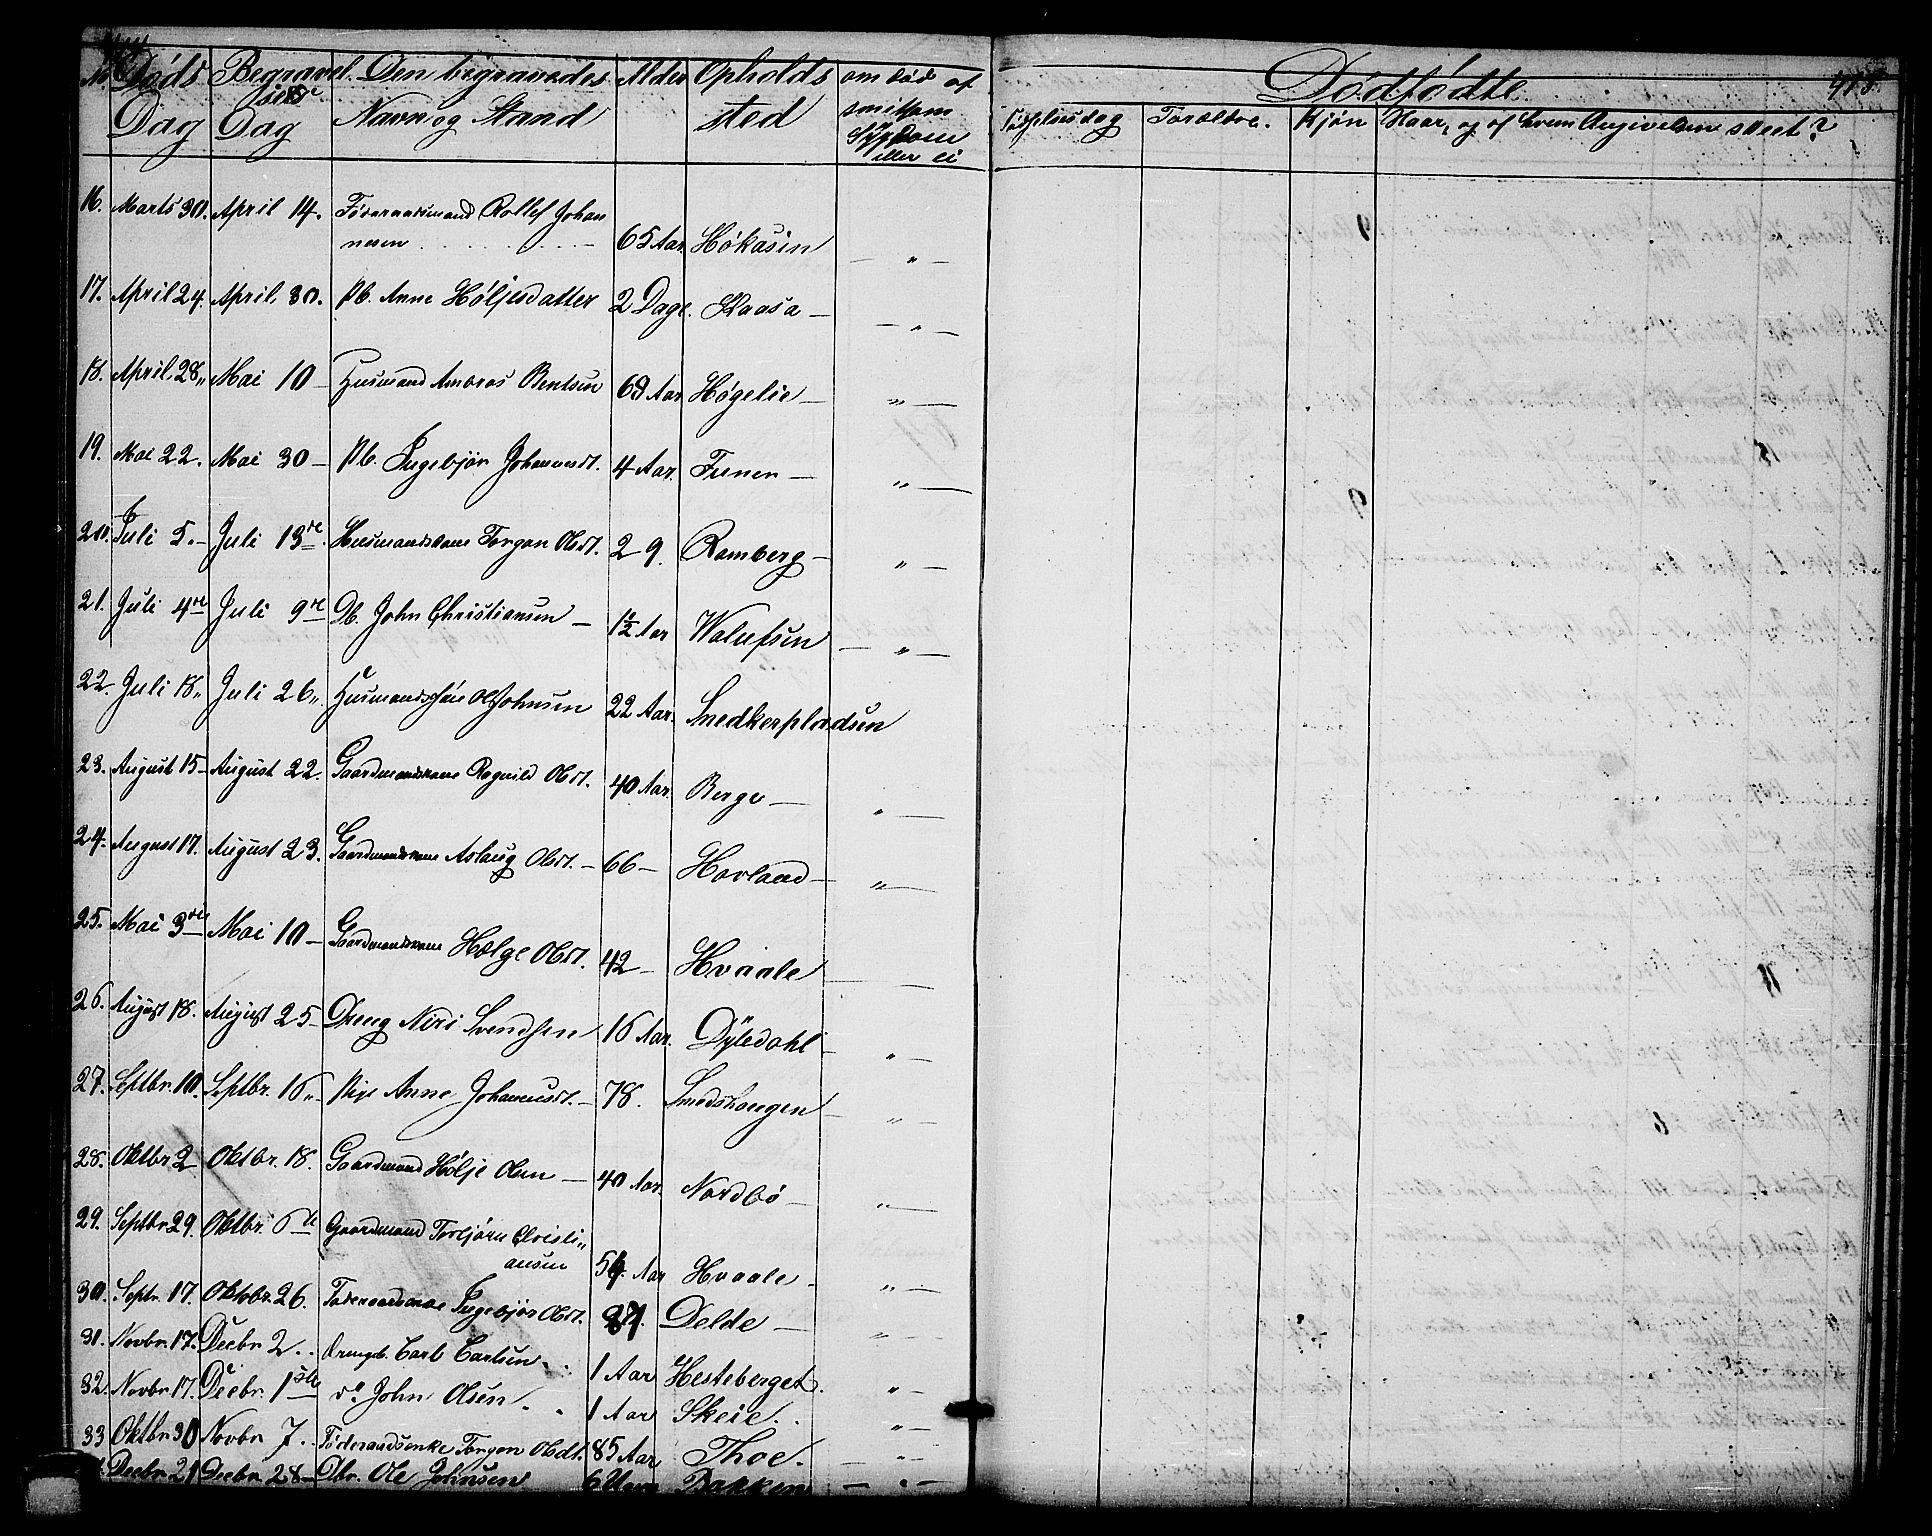 No Døds Dag Begravelses Dag Den begravedes Navn og Stand Alder Opholds sted om død af smitsom Sygdom eller ei
16. Marts 30. April 14. Føderaadsmand Rollef Johan
nesen 65 Aar Høkasin — „ —
17. April 24. April 30. Pb. Anne Høljesdatter 2 Dage. Skaasa — — „ —
18. April 28„ Mai 10 — Husmand Ambros Bentsen 69 Aar Høgelie — „ —
19. Mai 22. Mai 30 — Pb. Ingebjør Johannesdt. 4 Aar. Frenen — „ —
20. Juli 5. — Juli 13de. Husmandskone Torgon Olsdt. 29. Ramberg — „ —
21. Juli 4de Juli 9de Db. John Christiansen — 1½ Aar Walufsen — „ —
22. Juli 18„ Juli 26„ Husmandssøn Ol Johnsen 22 Aar. Snedkerpladsen
23. August 15 — August 22. Gaardmandskone Ragnild Olsdt. 40 Aar. Berge — „ —
24. August 17. August 23. Gaardmandskone Aslaug Olsdt. — 66 — Havland — „ —
25. Mai 3die Mai 10 — Gaardmandskone Hælge Olsdt. 42 — Hvaale —
26. August 18. August 25 — Dreng Niri Svendsen 16 Aar. Dyledahl — „ —
27. Septbr. 10. Septbr. 16„ — Pige Anne Johannesdt. — 78. Smedshaugen — „ —
28. Oktbr 2 Oktbr. 18. Gaardmand Hølje Olsen — 40 Aar. Nordbø — „ —
29. Septbr 29. Oktbr. 6te Gaardmand Torbjørn Christi„
ansen 54. Aar Hvaale — „ —
30. Septr. 17. Oktobr. 26. Føderaadsenke Ingebjør Olsdt. 87. Delde — „ —
31. Novbr. 17. Decbr. 2 . . Drengeb. Carl Carlsen . . 1 Aar Hesteberget.
32. Novbr. 17. Decbr. 1ste do John Olsen . . 1 Aar Skeie . . „ —
33 Oktbr 30 Novbr 7 . . Føderaadsenke Torgon Olsdt. 85 Aar Thoe. — „ —
Decbr. 21 Decbr. 28 — Dbr. Ole Johnsen 6 Bakken — „ —
Dødfødte 415.
Fødselsdag Forældre. Kjøn Naar, og af hvem Angivelsen skeet?